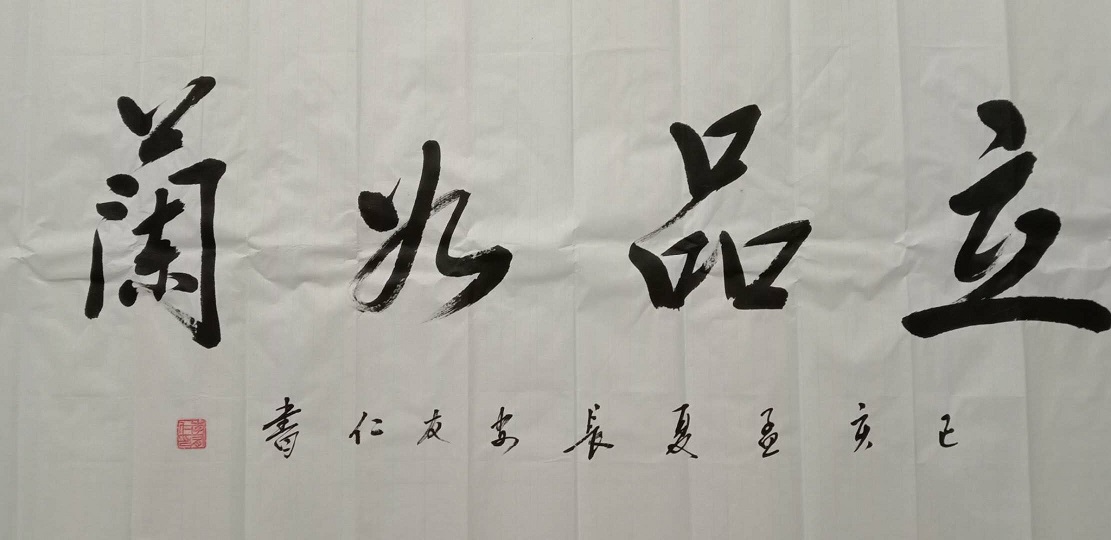 立品如蘭
己亥孟夏長安友仁書